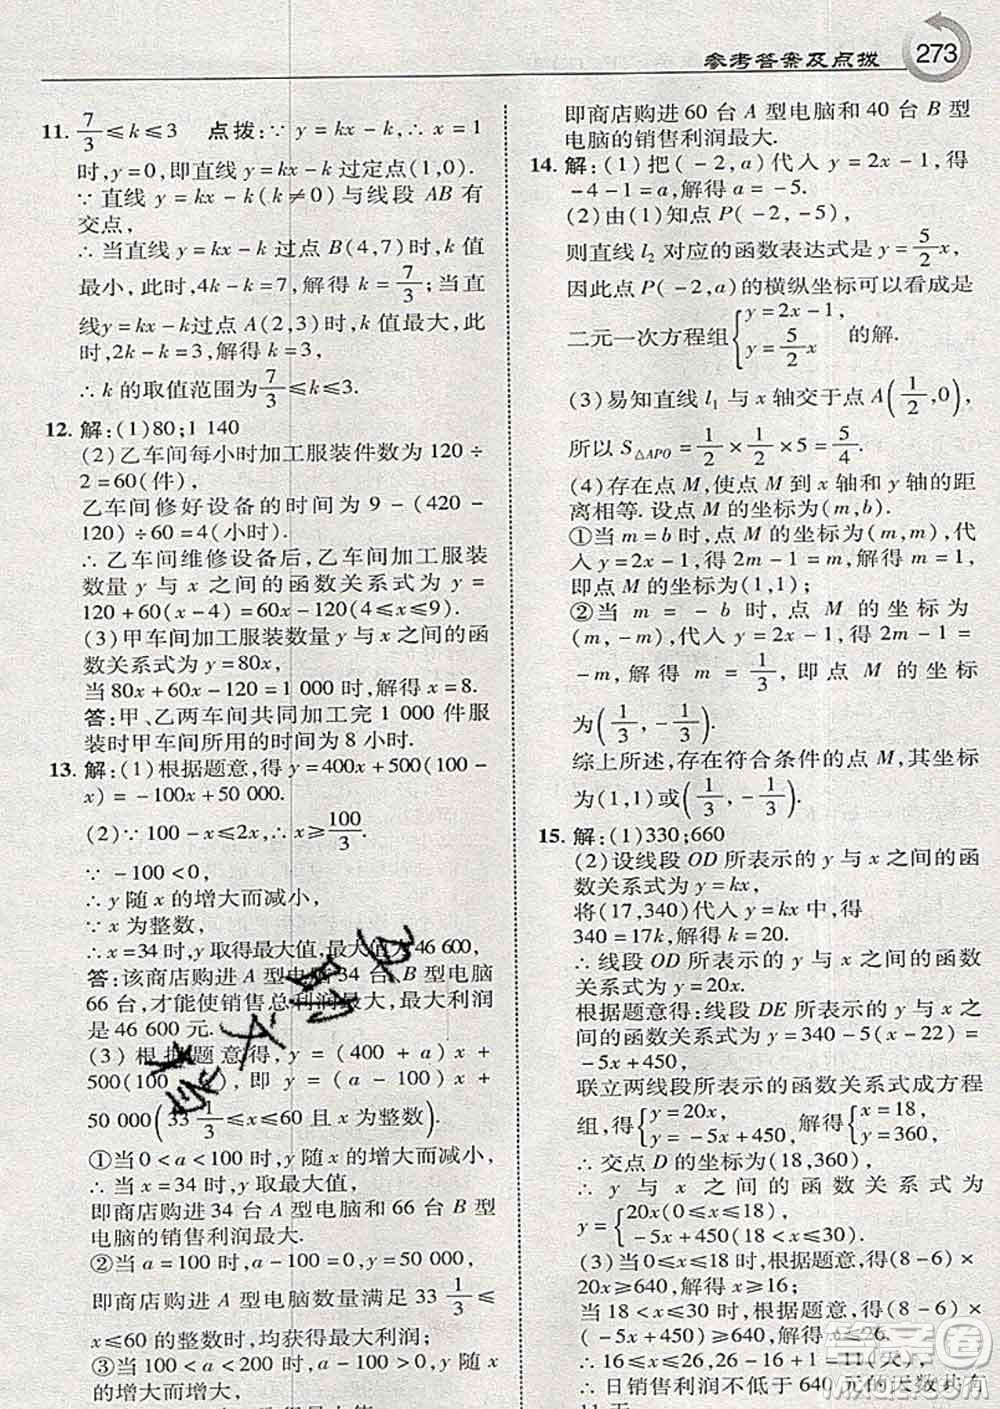 参考答案及点拨 273
11. 7/3≤k≤3 点拨:∵ y=kx-k,∴ x=1
时,y=0,即直线 y=kx-k 过定点(1,0).
∵ 直线 y=kx-k(k≠0)与线段 AB 有
交点,
∴ 当直线 y=kx-k 过点 B(4,7)时,k 值
最小,此时,4k-k=7,解得 k=7/3;当直
线y=kx-k过点 A(2,3)时,k 值最大,此
时,2k-k=3,解得 k=3.
∴ k 的取值范围为 7/3≤k≤3.
12. 解:(1)80;1 140
(2)乙车间每小时加工服装件数为 120÷
2=60(件),
乙车间修好设备的时间为 9-(420-
120)÷60=4(小时).
∴ 乙车间维修设备后,乙车间加工服装
数量 y 与 x 之间的函数关系式为 y=
120+60(x-4)=60x-120(4≤x≤9).
(3)甲车间加工服装数量 y 与 x 之间的函
数关系式为 y=80x,
当 80x+60x-120=1 000 时,解得 x=8.
答:甲、乙两车间共同加工完 1 000 件服
装时甲车间所用的时间为 8 小时.
13. 解:(1)根据题意,得 y=400x+500(100-
x)=-100x+50 000.
(2)∵ 100-x≤2x,∴ x≥100/3.
∵ -100<0,
∴ y 随 x 的增大而减小,
∵ x 为整数,
∴ x=34 时,y 取得最大值,最大值为46 600,
答:该商店购进 A 型电脑 34 台、B 型电脑
66 台,才能使销售总利润最大,最大利润
是 46 600 元.
(3) 根据题意得, y = (400 + a) x +
500(100-x),即 y=(a-100)x+
50 000(33 1/3≤x≤60 且 x 为整数).
①当 0<a<100 时,y 随 x 的增大而减小,
∴ 当 x=34 时,y 取最大值,
即商店购进 34 台 A 型电脑和 66 台 B 型
电脑的销售利润最大.
②当 a=100 时,a-100=0,y=50 000,
即商店购进 A 型电脑数量满足 33 1/3≤x
≤60 的整数时,均获得最大利润;
③当 100<a<200 时,a-100>0,
即商店购进 60 台 A 型电脑和 40 台 B 型
电脑的销售利润最大.
14. 解:(1)把(-2,a)代入 y=2x-1,得
-4-1=a,解得 a=-5.
(2)由(1)知点 P(-2,-5),
则直线 l₂ 对应的函数表达式是 y=5/2x,
因此点 P(-2,a)的横纵坐标可以看成是
二元一次方程组{y=2x-1, y=5/2x 的解.
(3)易知直线 l₁ 与 x 轴交于点 A(1/2,0),
所以 S△APO=1/2×1/2×5=5/4.
(4)存在点 M,使点 M 到 x 轴和 y 轴的距
离相等.设点 M 的坐标为(m,b).
①当 m=b 时,点 M 的坐标为(m,m),代
入 y=2x-1,得 2m-1=m,解得 m=1,
即点 M 的坐标为(1,1);
②当 m = -b 时, 点 M 的坐标为
(m,-m),代入 y=2x-1,得 2m-1=
-m,解得 m=1/3,即点 M 的坐标
为(1/3,-1/3).
综上所述,存在符合条件的点 M,坐标为
(1,1)或(1/3,-1/3).
15. 解:(1)330;660
(2)设线段 OD 所表示的 y 与 x 之间的函
数关系式为 y=kx,
将(17,340)代入 y=kx 中,得
340=17k,解得 k=20.
∴ 线段 OD 所表示的 y 与 x 之间的函数
关系式为 y=20x.
根据题意得:线段 DE 所表示的 y 与 x 之
间的函数关系式为 y=340-5(x-22)=
-5x+450,
联立两线段所表示的函数关系式成方程
组,得{y=20x, y=-5x+450, 解得{x=18, y=360,
∴ 交点 D 的坐标为(18,360),
∴ y 与 x 之间的函数关系式为
y={20x(0≤x≤18) -5x+450(18<x≤30).
(3)当 0≤x≤18 时,根据题意,得(8-6)×
20x≥640,解得 x≥16;
当 18<x≤30 时,根据题意,得(8-6)×
(-5x+450)≥640,解得 x≤26.
∴ 16≤x≤26. 26-16+1=11(天),
∴ 日销售利润不低于 640 元的天数共有
11 天.